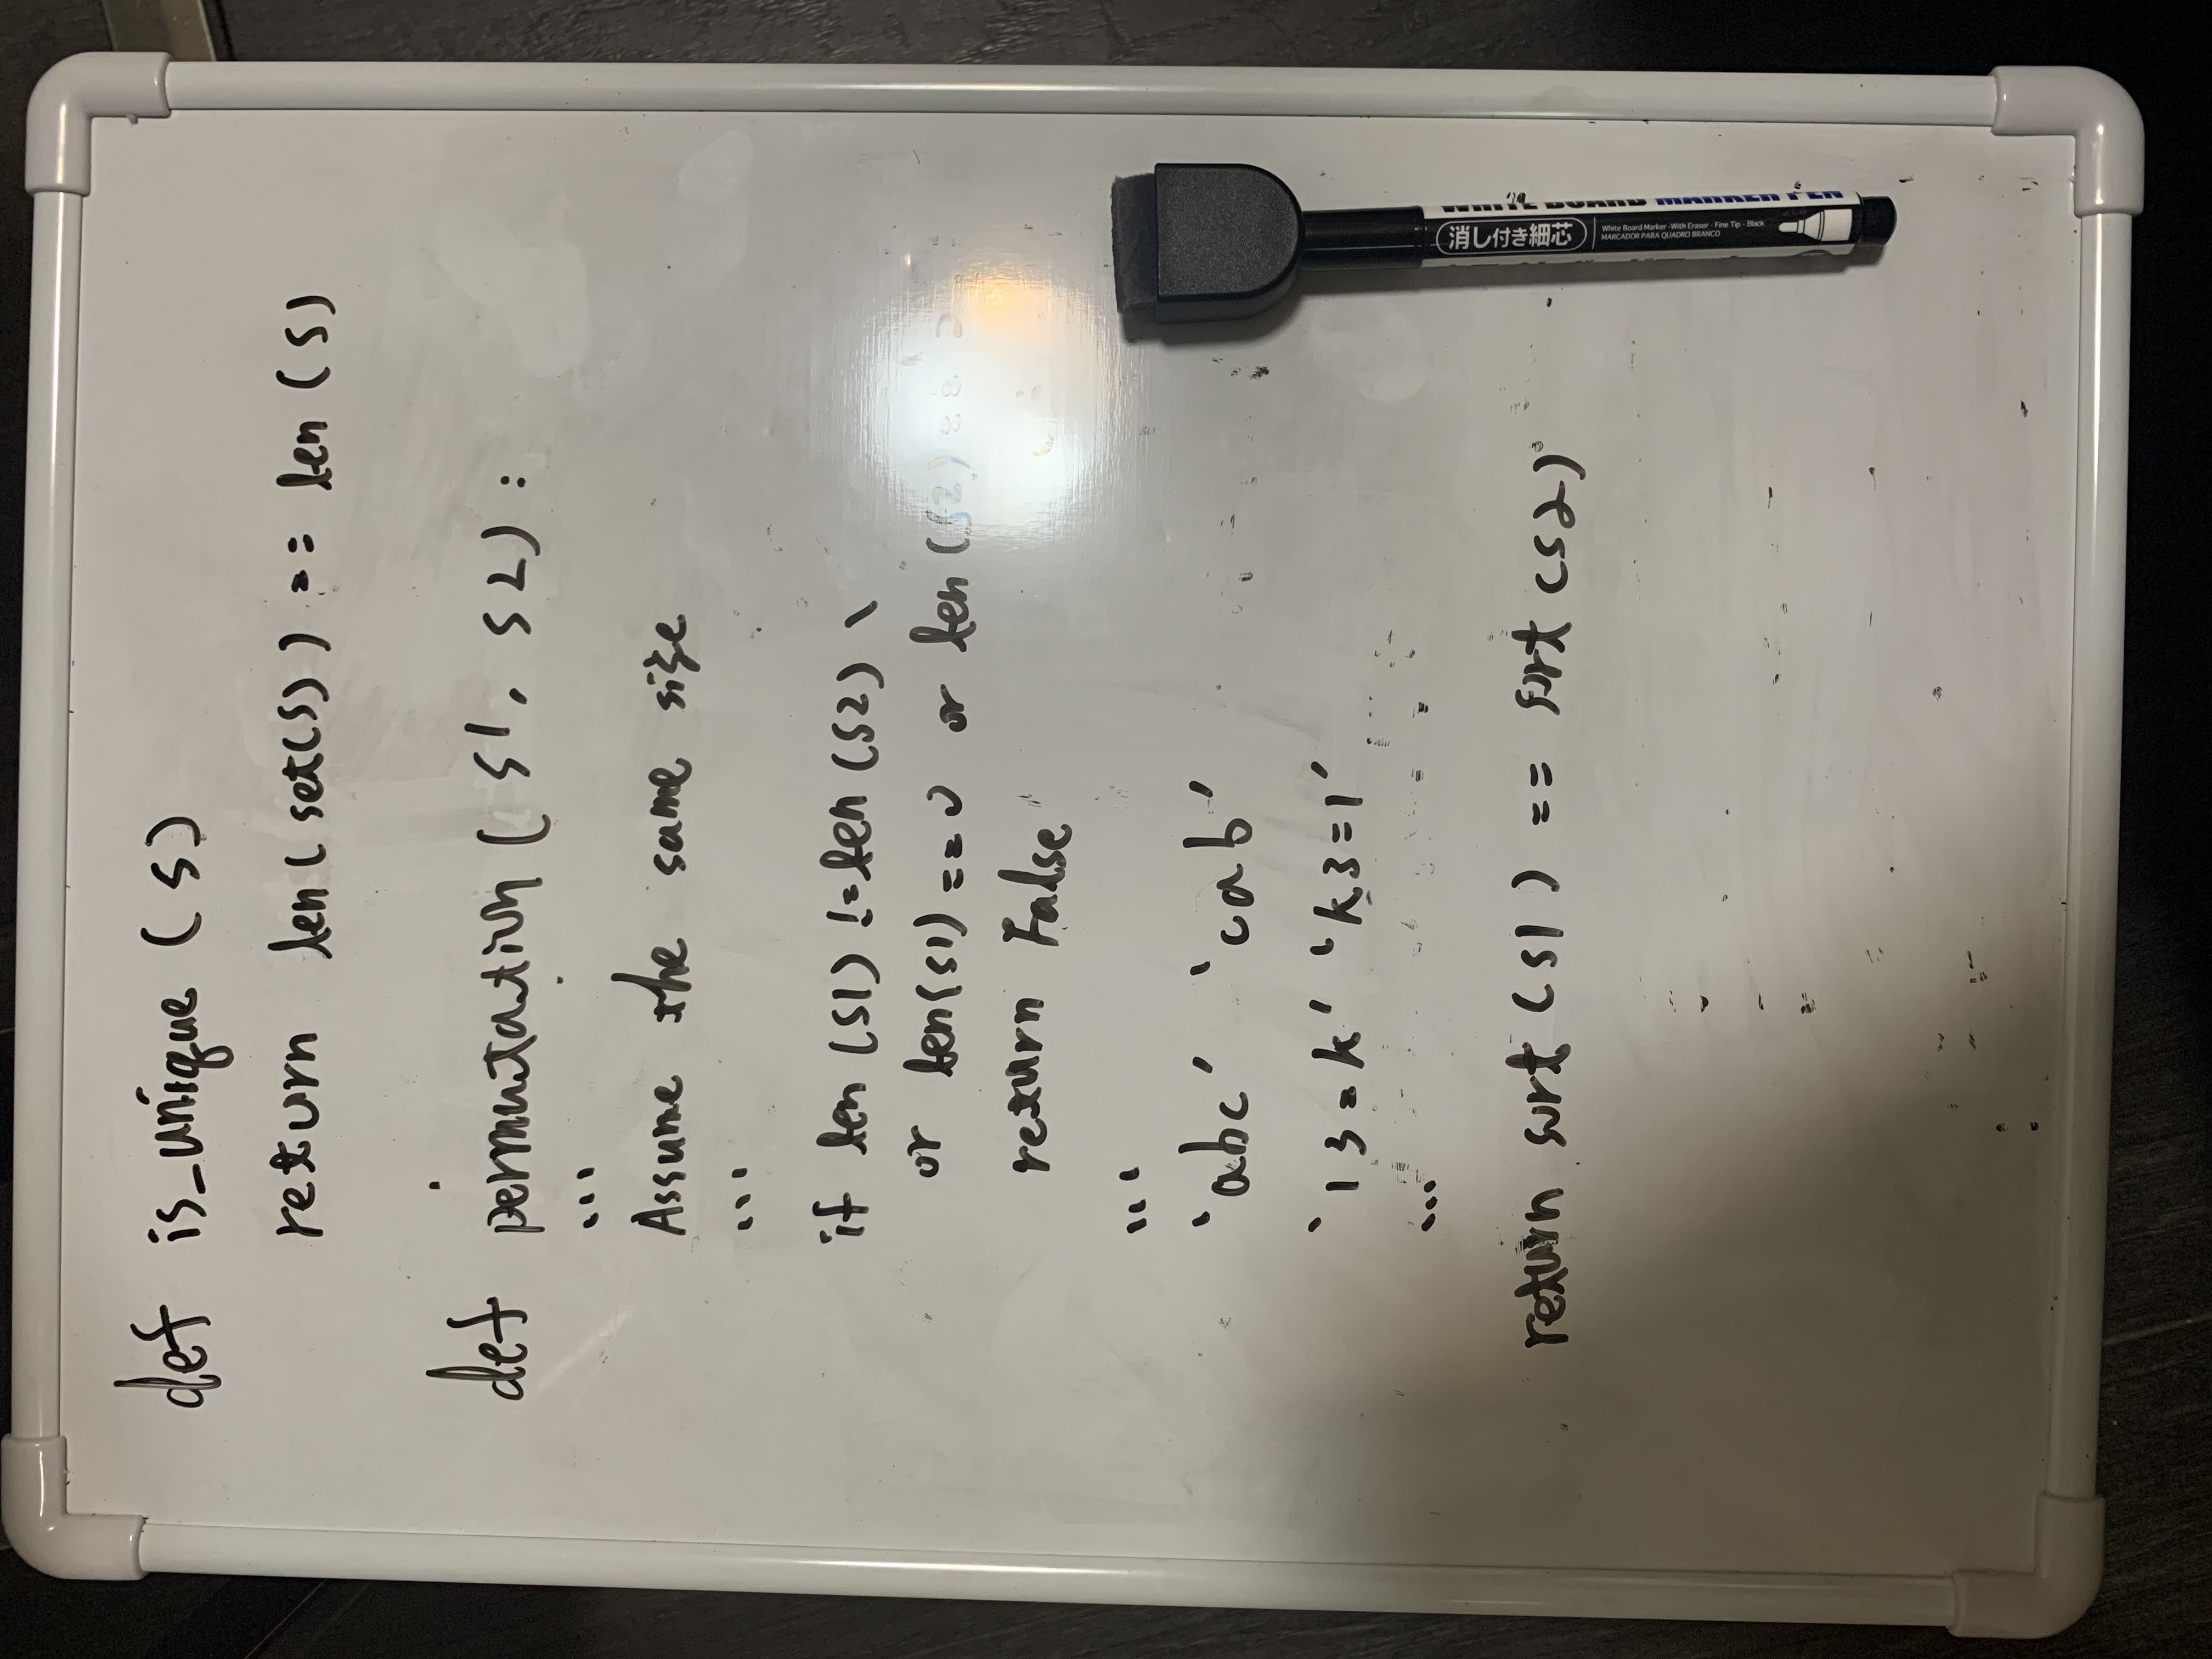 def is_unique (s)
return len(set(s)) == len(s)
def permutation(s1, s2):
'''
Assume the same size
'''
if len(s1) != len(s2) \
or len(s1) == 0 or len(s2) == 0
:
return False
'''
'abc' 'cab'
'13=k' 'k3=1'
'''
return sort(s1) == sort(s2)
消し付き細芯
White Board Marker - With Eraser - Fine Tip - Black
MARCADOR PARA QUADRO BRANCO
WHITE BOARD MARKER PEN